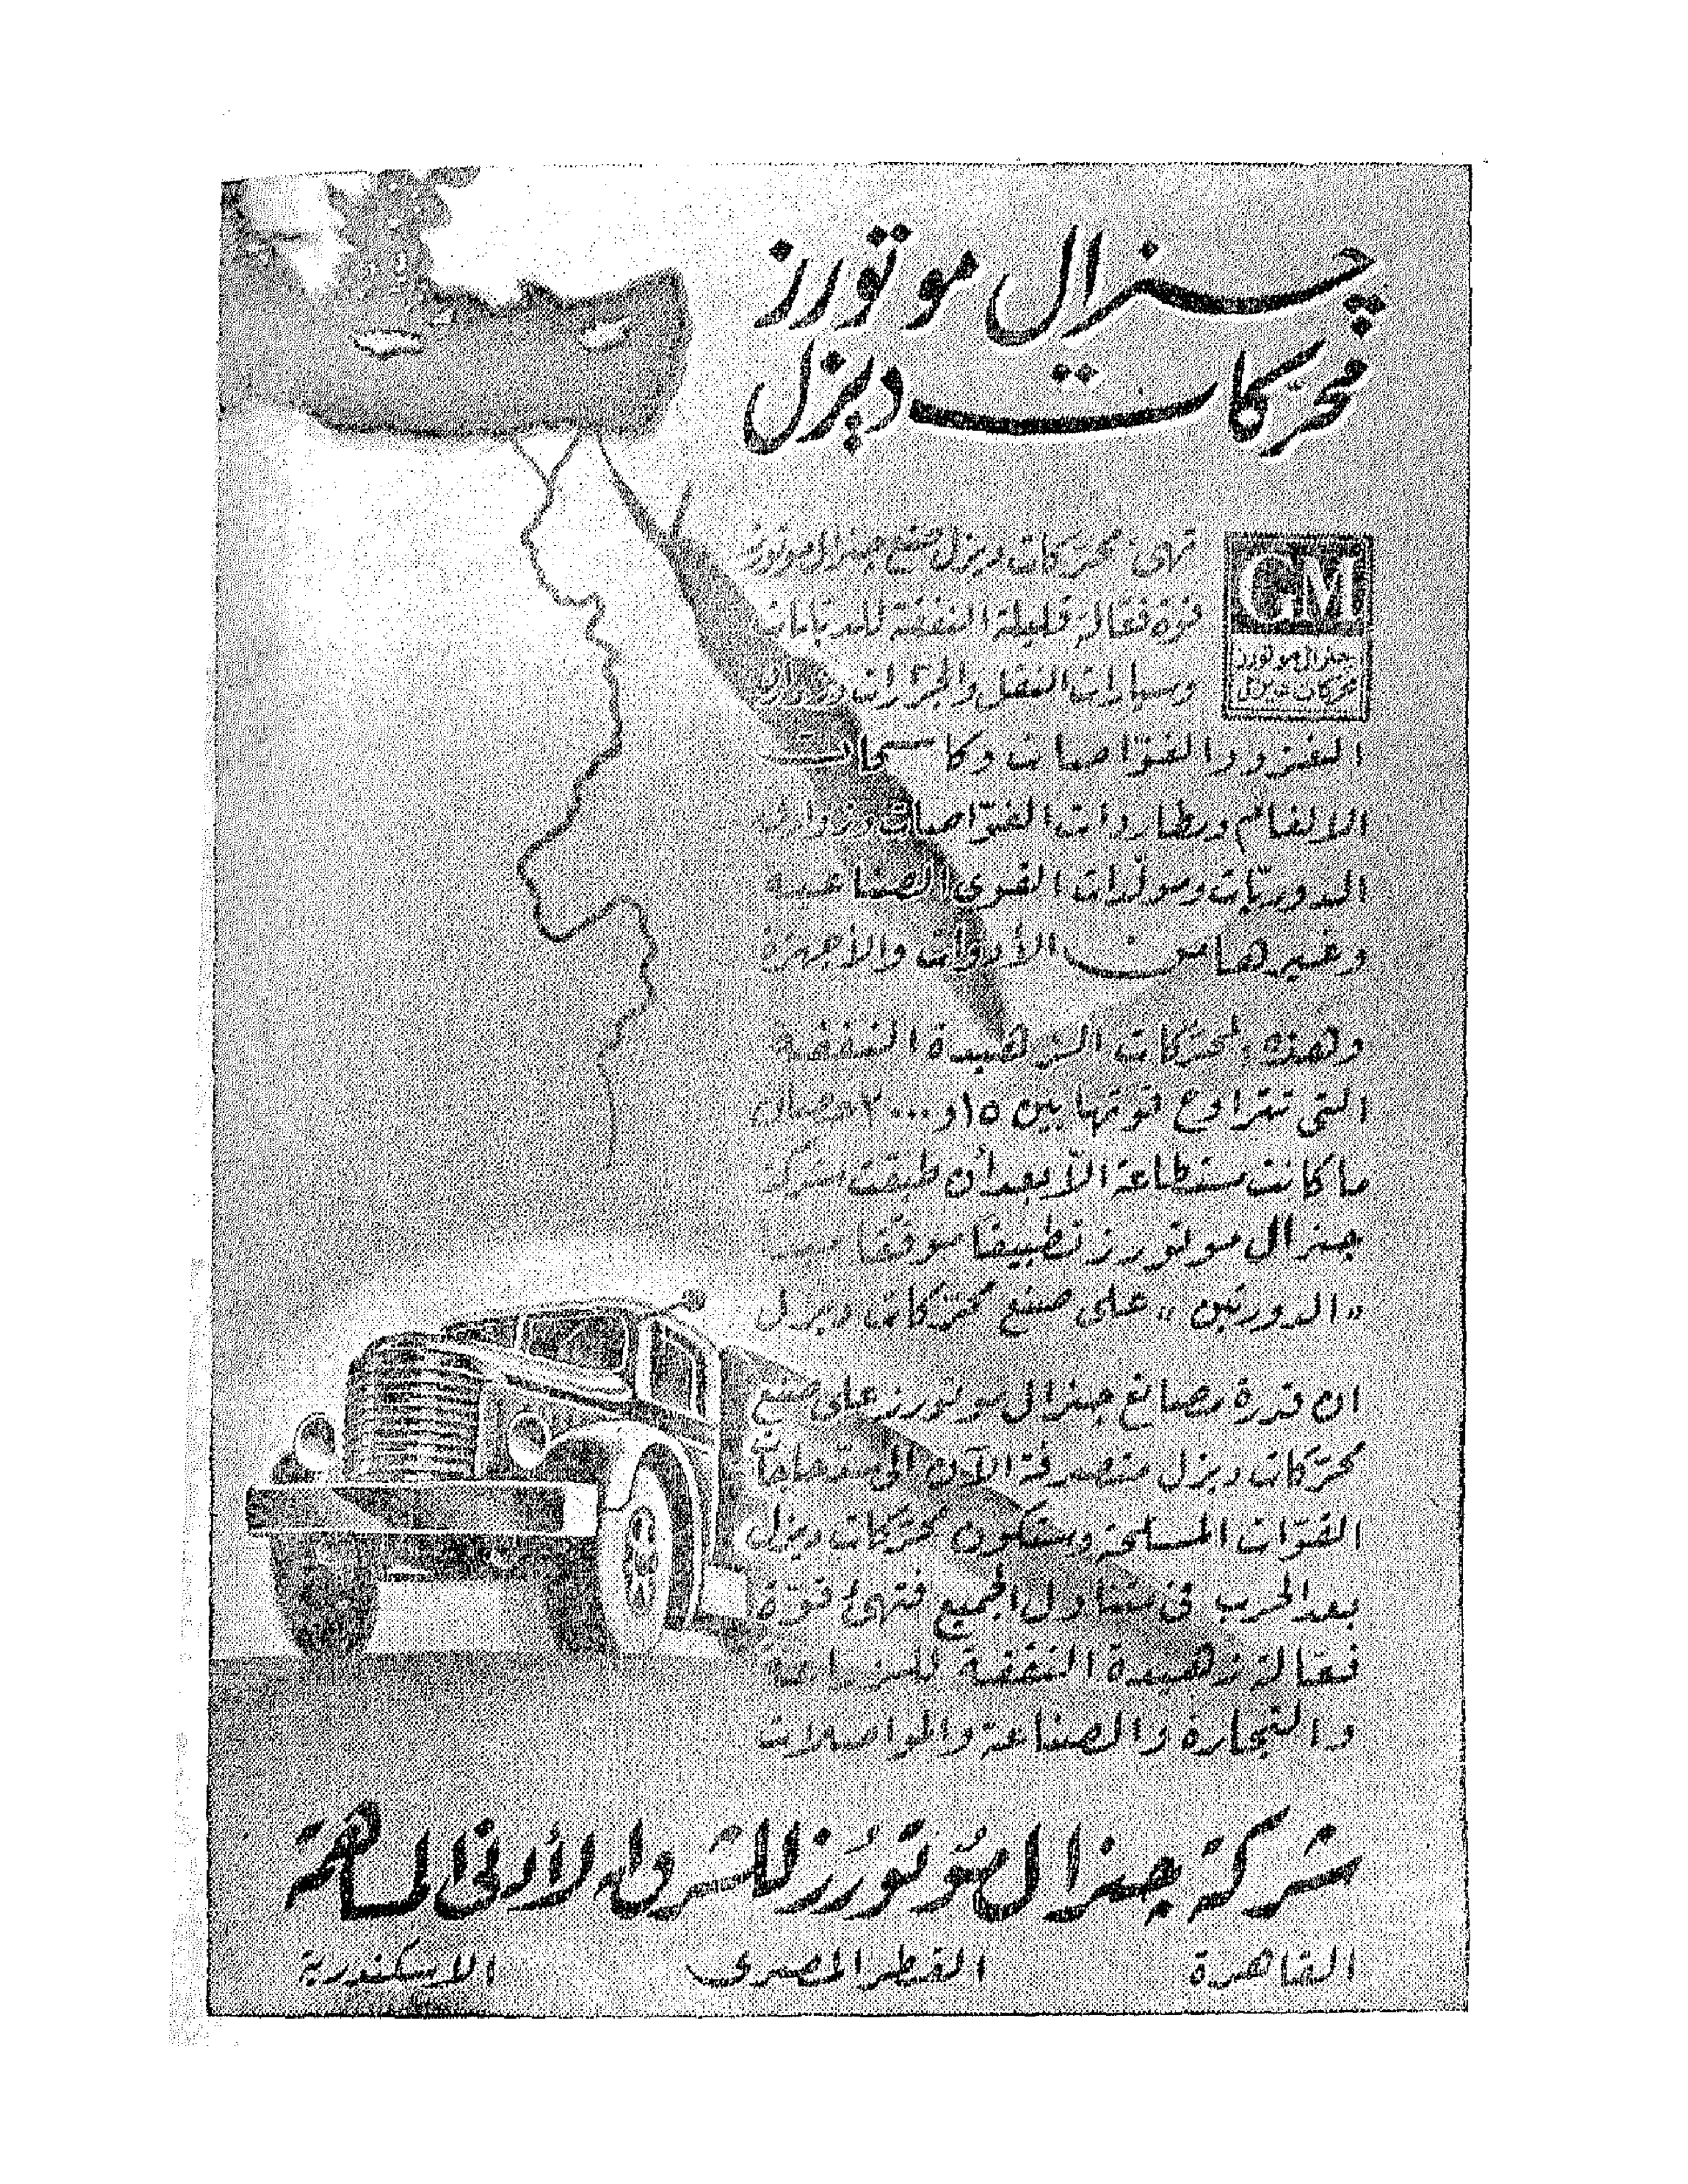 جنرال موتورز
محركات ديزل
تهئ محركات ديزل صنع جنرال موتورز
قوة فعالة قليلة النفقة للدبابات
وسيارات النقل والجرارات وزوارق
الغزو والغواصات وكاسحات
الالغام ومطاردات الغواصات وزوارق
الدوريات ومولدات القوى الصناعية
وغيرها من الأدوات والأجهزة
GM
جنرال موتورز
محركات ديزل
وهذه المحركات الزهيدة النفقة
التى تتراوح قوتها بين ١٥ و ٢٠٠٠ حصان
ما كانت مستطاعة الا بعد أن طبقت شركة
جنرال موتورز تطبيقاً موفقاً مبدأ
"الدورتين" على صنع محركات ديزل
ان قدرة مصانع جنرال موتورز على صنع
محركات ديزل منصرفة الآن الى
القوات المسلحة وستكون محركات ديزل
بعد الحرب فى متناول الجميع فتهئ قوة
فعالة زهيدة النفقة للزراعة
والتجارة والصناعة والمواصلات
شركة جنرال موتورز للشرق الأدنى المساهمة
القاهرة القطر المصرى الاسكندرية